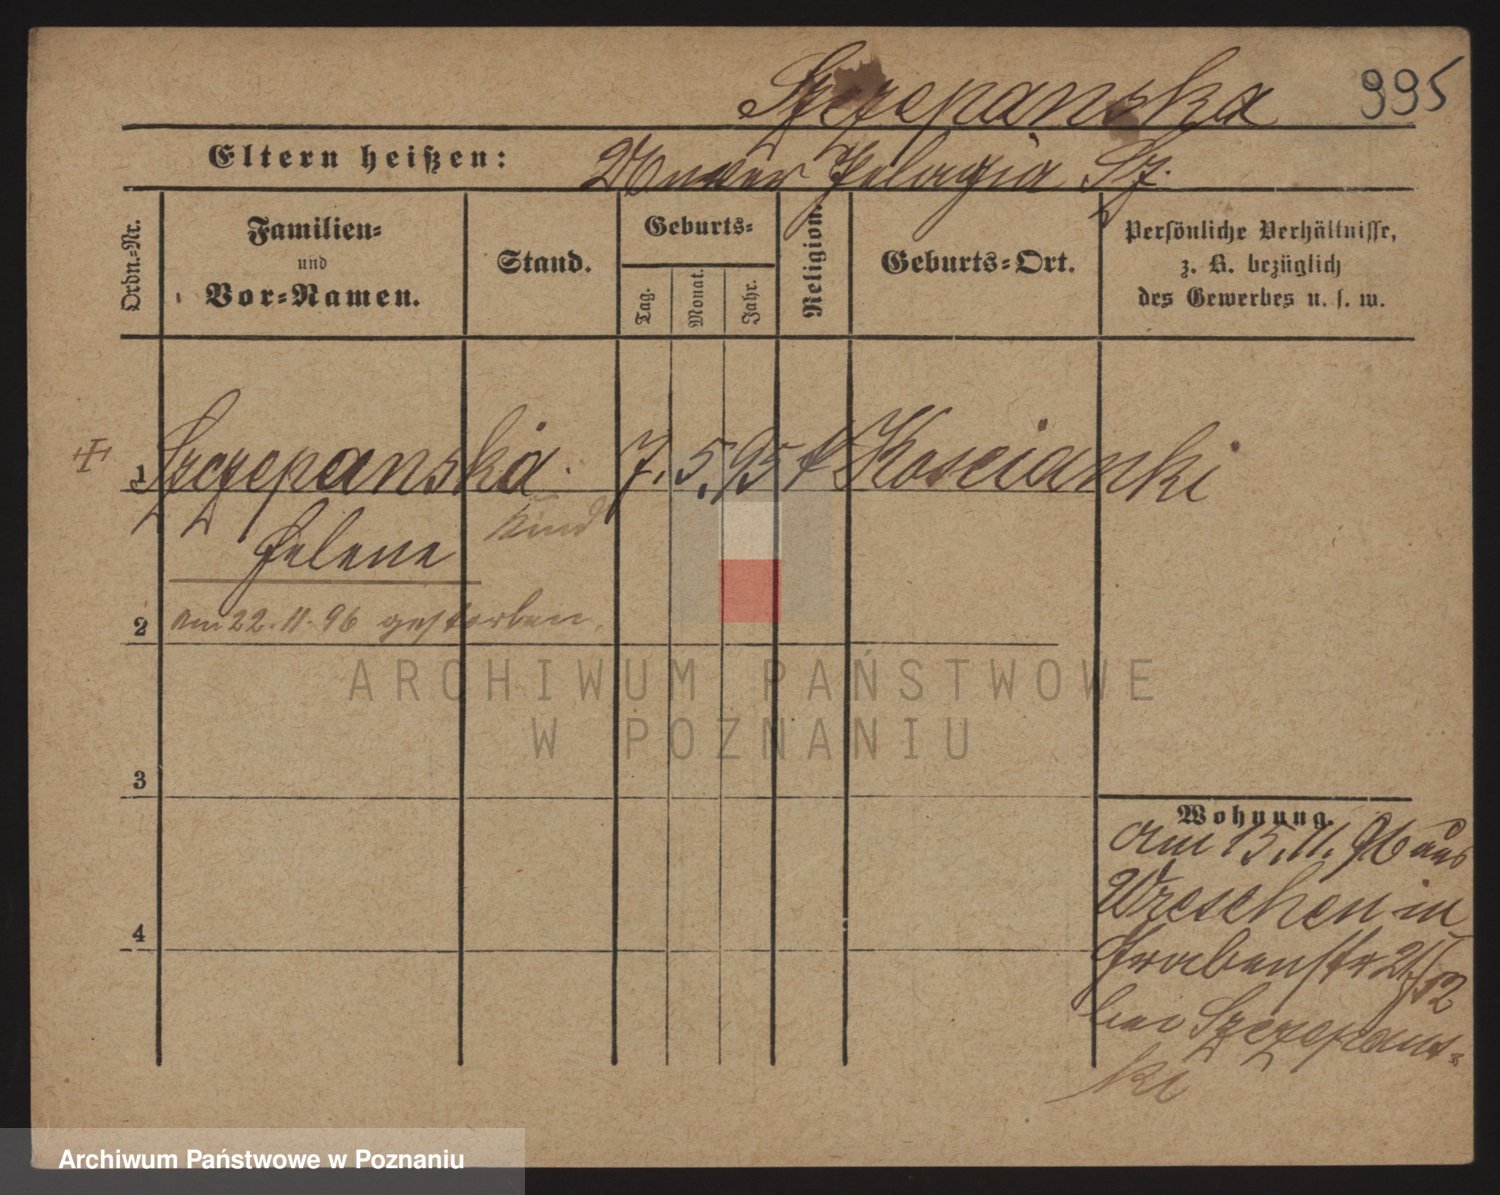 Szczepanska 995
Eltern heißen: Mutter Pelagia Sz.
Ordn.-Nr.
Familien-
und
Vor-Namen.
Stand.
Geburts-
Tag.
Monat.
Jahr.
Religion.
Geburts-Ort.
Persönliche Verhältnisse,
z. B. bezüglich
des Gewerbes u. s. w.
1 Szczepanska. 7. 5. 95 k Koscianki
Helene Kind
2 am 22.11.96 gestorben.
ARCHIWUM PAŃSTWOWE
W POZNANIU
3
4
Wohnung.
am 15.11.96 aus
Wreschen in
Grabenstr
bei Szczepans-
ki
Archiwum Państwowe w Poznaniu